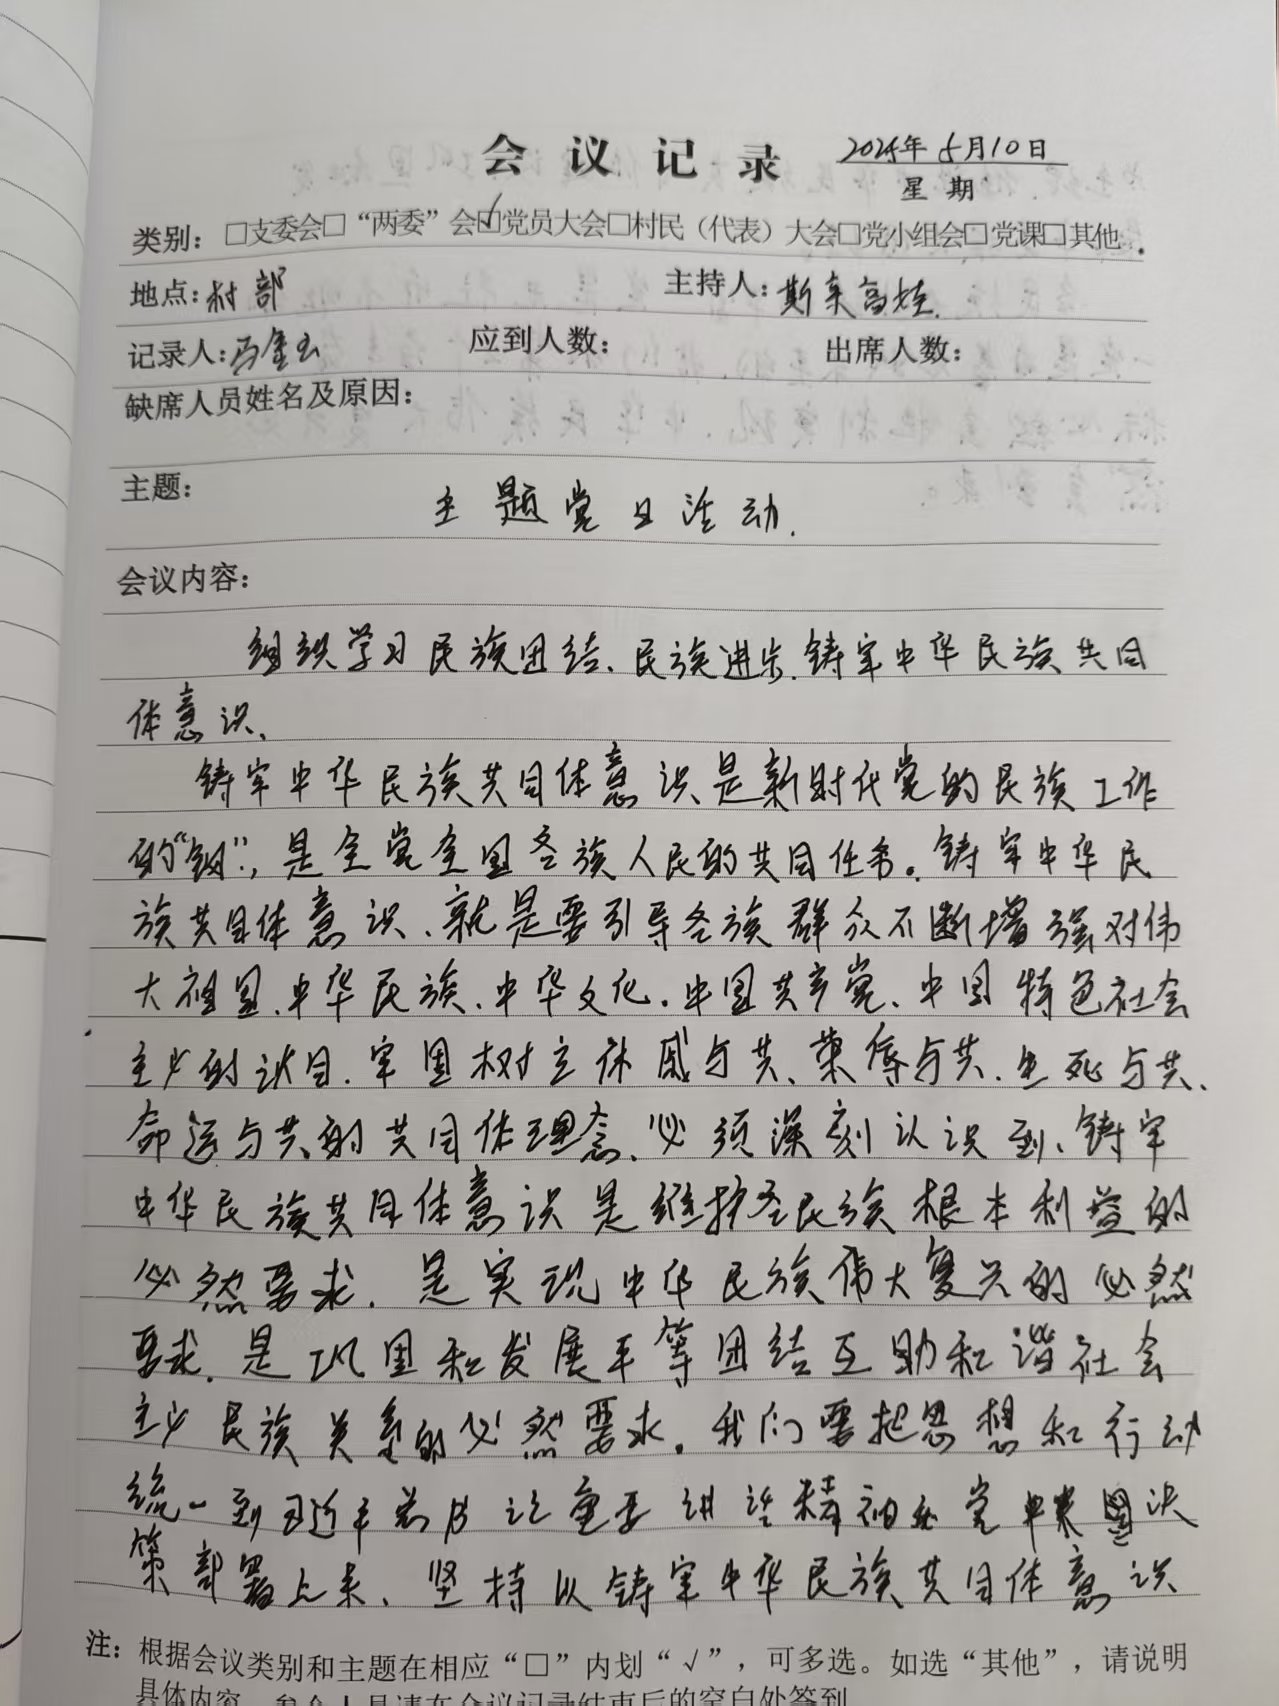 会议记录 2024年5月10日
星期
类别：□支委会□“两委”会☑党员大会□村民（代表）大会□党小组会□党课□其他
地点：村部 主持人：斯来高娃
记录人：冯金玉 应到人数： 出席人数：
缺席人员姓名及原因：
主题：
主题党日活动.
会议内容：
组织学习民族团结、民族进步、铸牢中华民族共同
体意识、
铸牢中华民族共同体意识是新时代党的民族工作
的“纲”，是全党全国各族人民的共同任务。铸牢中华民
族共同体意识、就是要引导各族群众不断增强对伟
大祖国、中华民族、中华文化、中国共产党、中国特色社会
主义的认同、牢固树立休戚与共、荣辱与共、生死与共、
命运与共的共同体理念、必须深刻认识到、铸牢
中华民族共同体意识是维护各民族根本利益的
必然要求、是实现中华民族伟大复兴的必然
要求、是巩固和发展平等团结互助和谐社会
主义民族关系的必然要求。我们要把思想和行动
统一到习近平总书记重要讲话精神和党中央决
策部署上来、坚持以铸牢中华民族共同体意识
注：根据会议类别和主题在相应“□”内划“√”，可多选。如选“其他”，请说明
具体内容，参会人员请在会议记录结束后的空白处签到